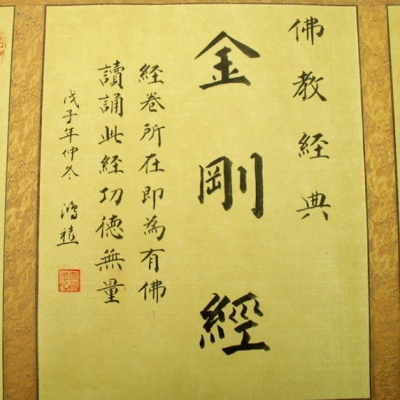 佛教經典
金剛經
經卷所在即為有佛
讀誦此經功德無量
戊子年仲冬 鴻